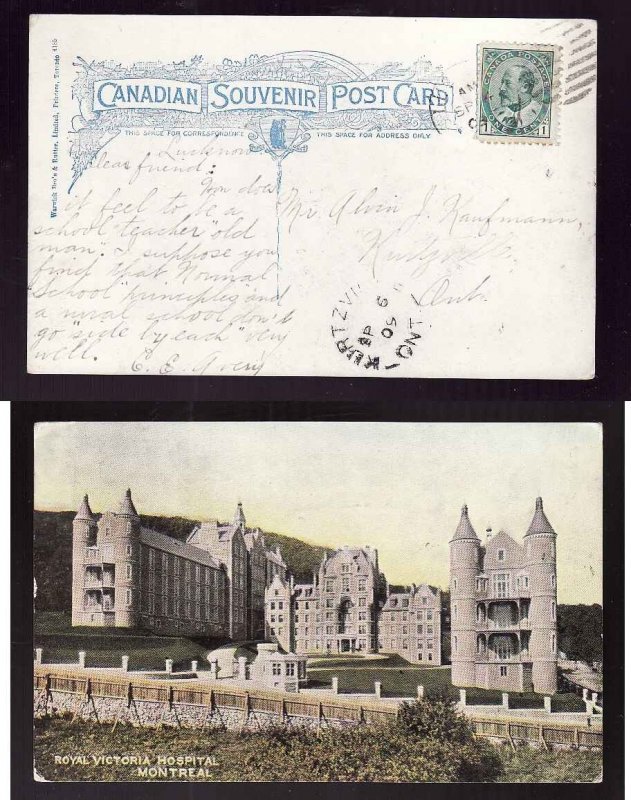 Warwick Bro's & Rutter, Limited, Printers, Toronto
CANADIAN SOUVENIR POST CARD
THIS SPACE FOR CORRESPONDENCE THIS SPACE FOR ADDRESS ONLY
CANADA POSTAGE
1 ONE CENT 1
AM
SP
Lucknow
Dear friend:
You does
it feel to be a
school teacher "old
man". I suppose you
find that Normal
School" principles and
a rural school don't
go "side by each" very
well.
C. E. Avery
Mr. Alvin J. Kaufmann,
Kurtzville
Ont.
KURTZVI
SP 6
09
ONT
ROYAL VICTORIA HOSPITAL
MONTREAL